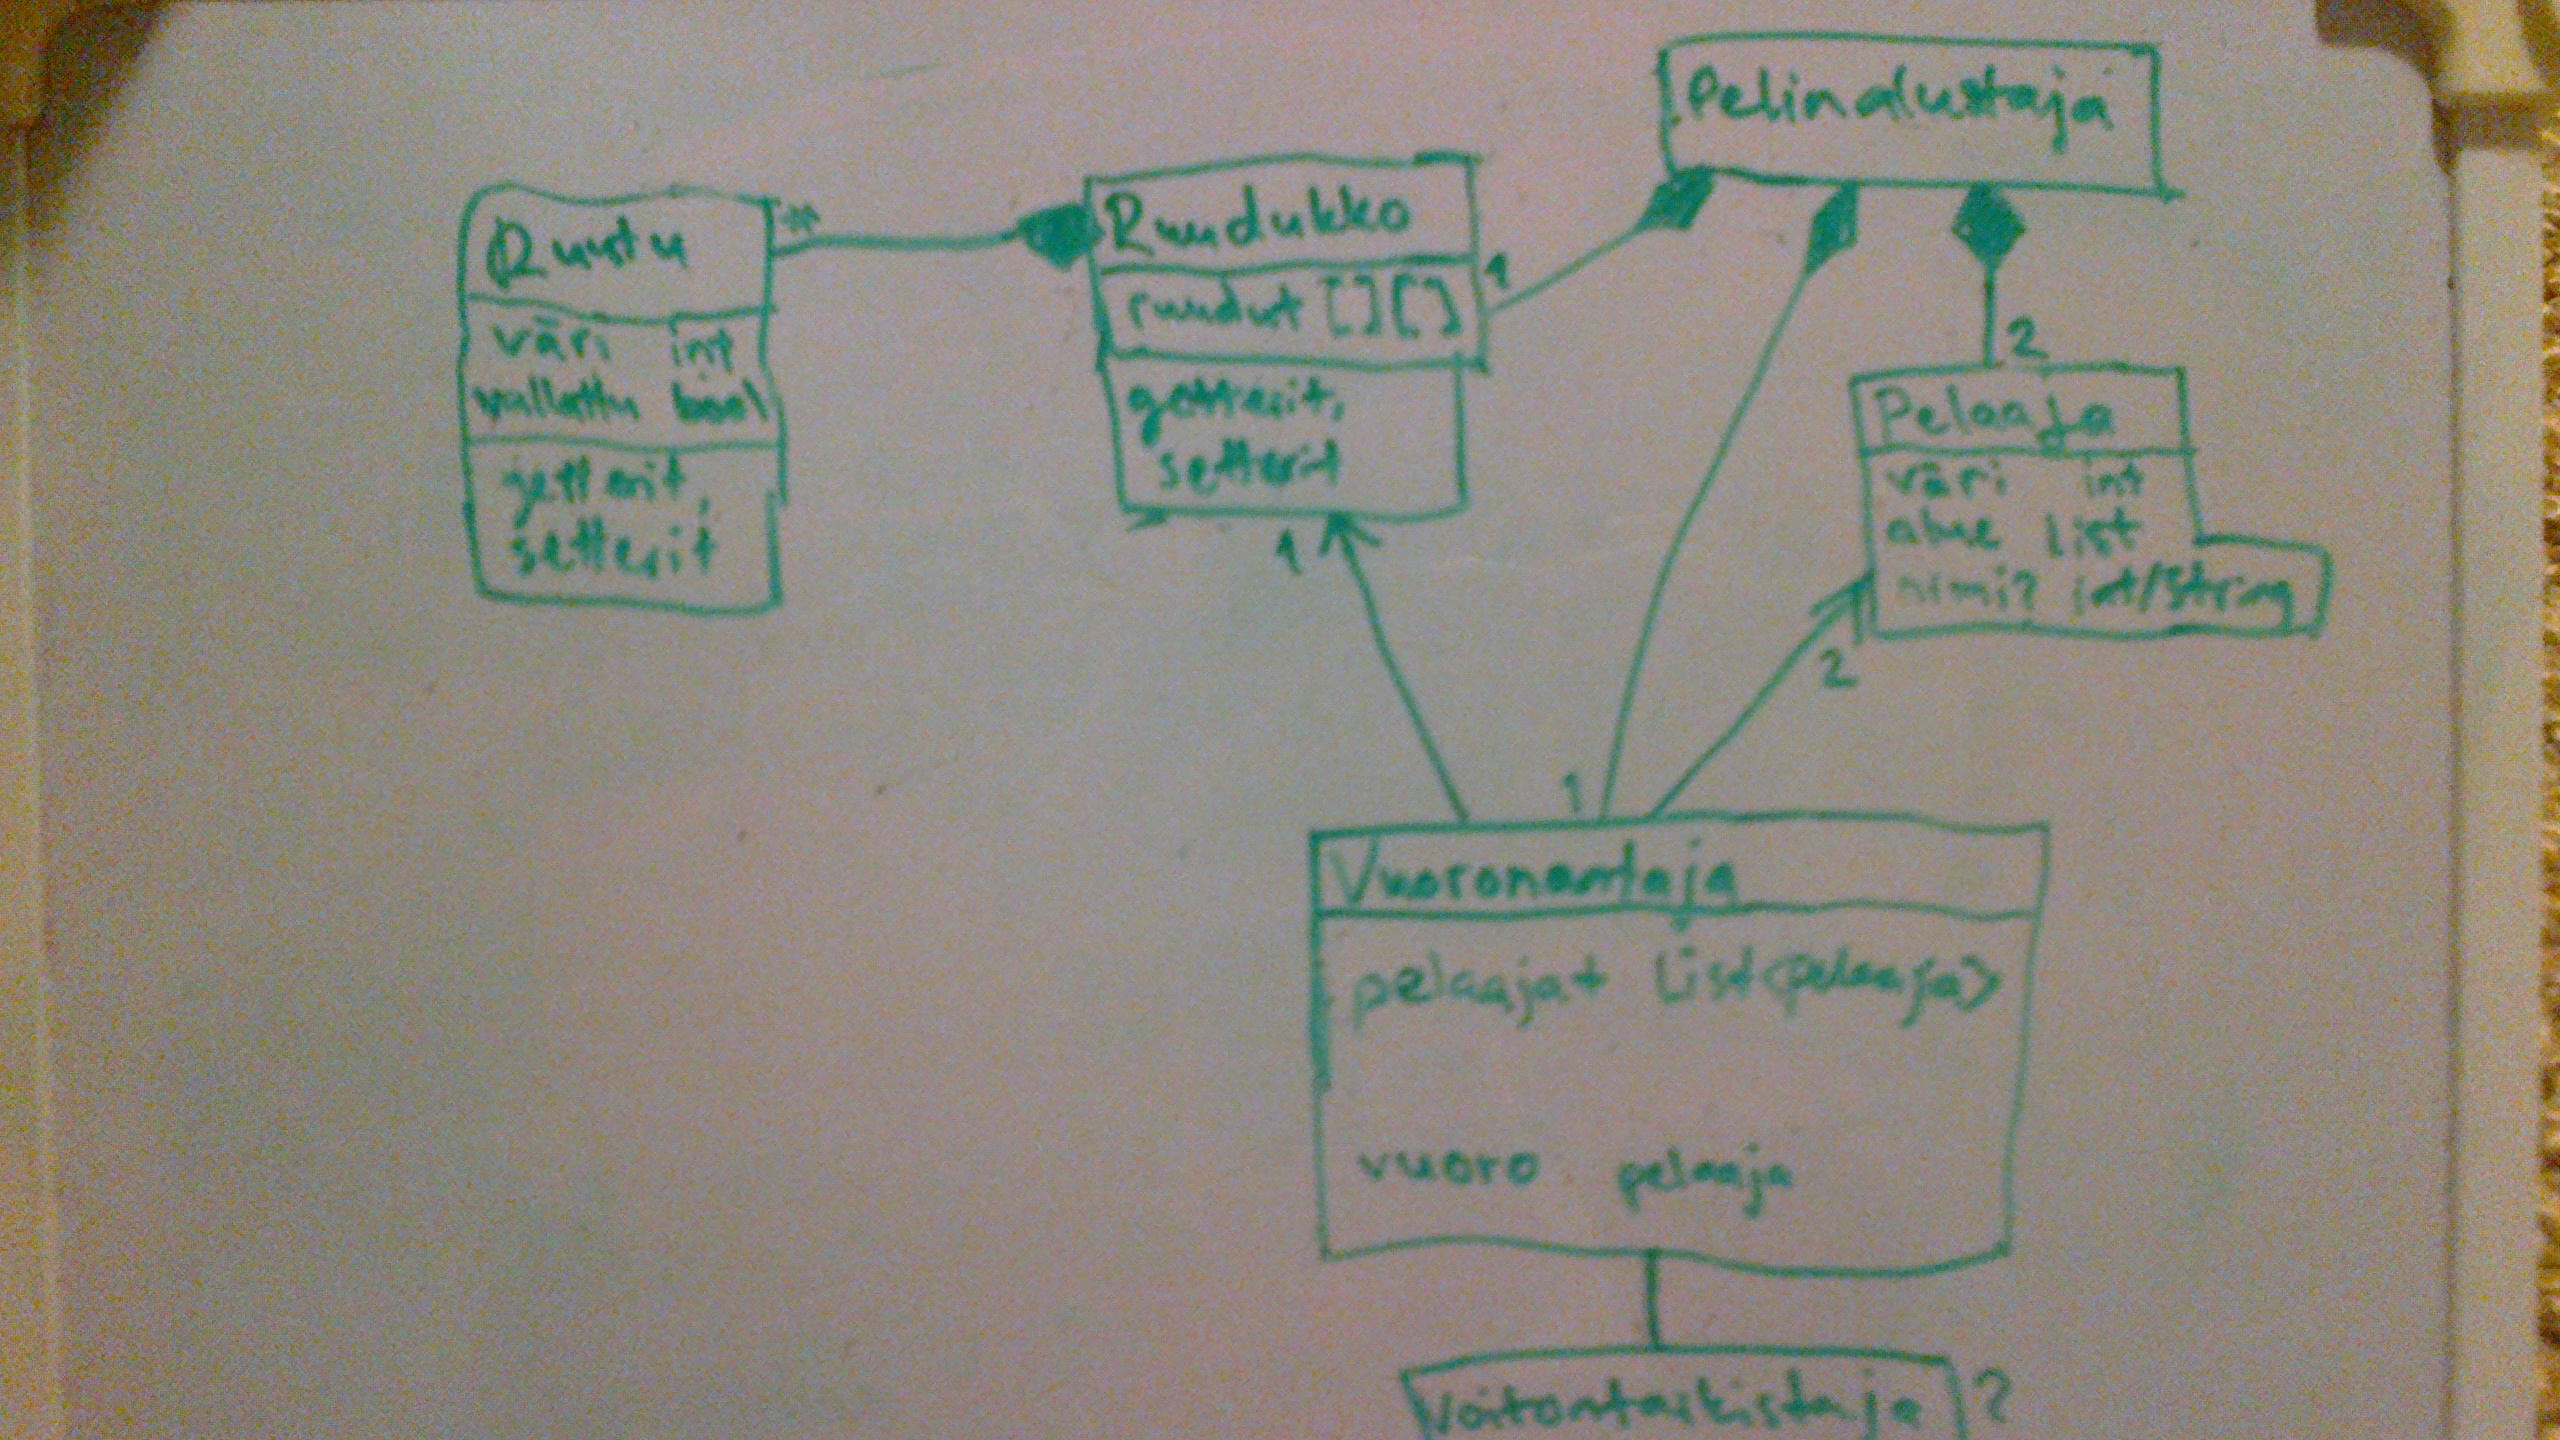 Pelinalustaja
Ruutu
*
väri int
vallattu bool
getterit,
setterit
Ruudukko
1
ruudut [][]
getterit,
setterit
1
2
Pelaaja
väri int
alue List
nimi? int/String
2
1
Vuoronantaja
pelaajat List<pelaaja>
vuoro pelaaja
Voitontarkistaja ?